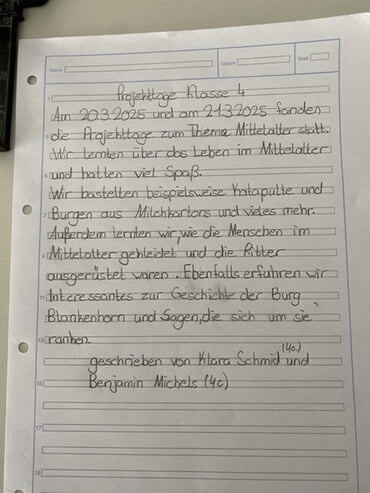 Name
Datum
Blatt
1 Projekttage Klasse 4
Am 20.3.2025 und am 21.3.2025 fanden
3 die Projekttage zum Thema Mittelalter statt.
Wir lernten über das Leben im Mittelalter
5 und hatten viel Spaß.
Wir bastelten beispielsweise Katapulte und
7 Burgen aus Milchkartons und vieles mehr.
Außerdem lernten wir, wie die Menschen im
9 Mittelalter gekleidet und die Ritter
ausgerüstet waren. Ebenfalls erfuhren wir
11 Interessantes zur Geschichte der Burg
Blankenhorn und Sagen, die sich um sie
13 ranken.
(4c)
geschrieben von Klara Schmid und
15 Benjamin Michels (4c)
17
19